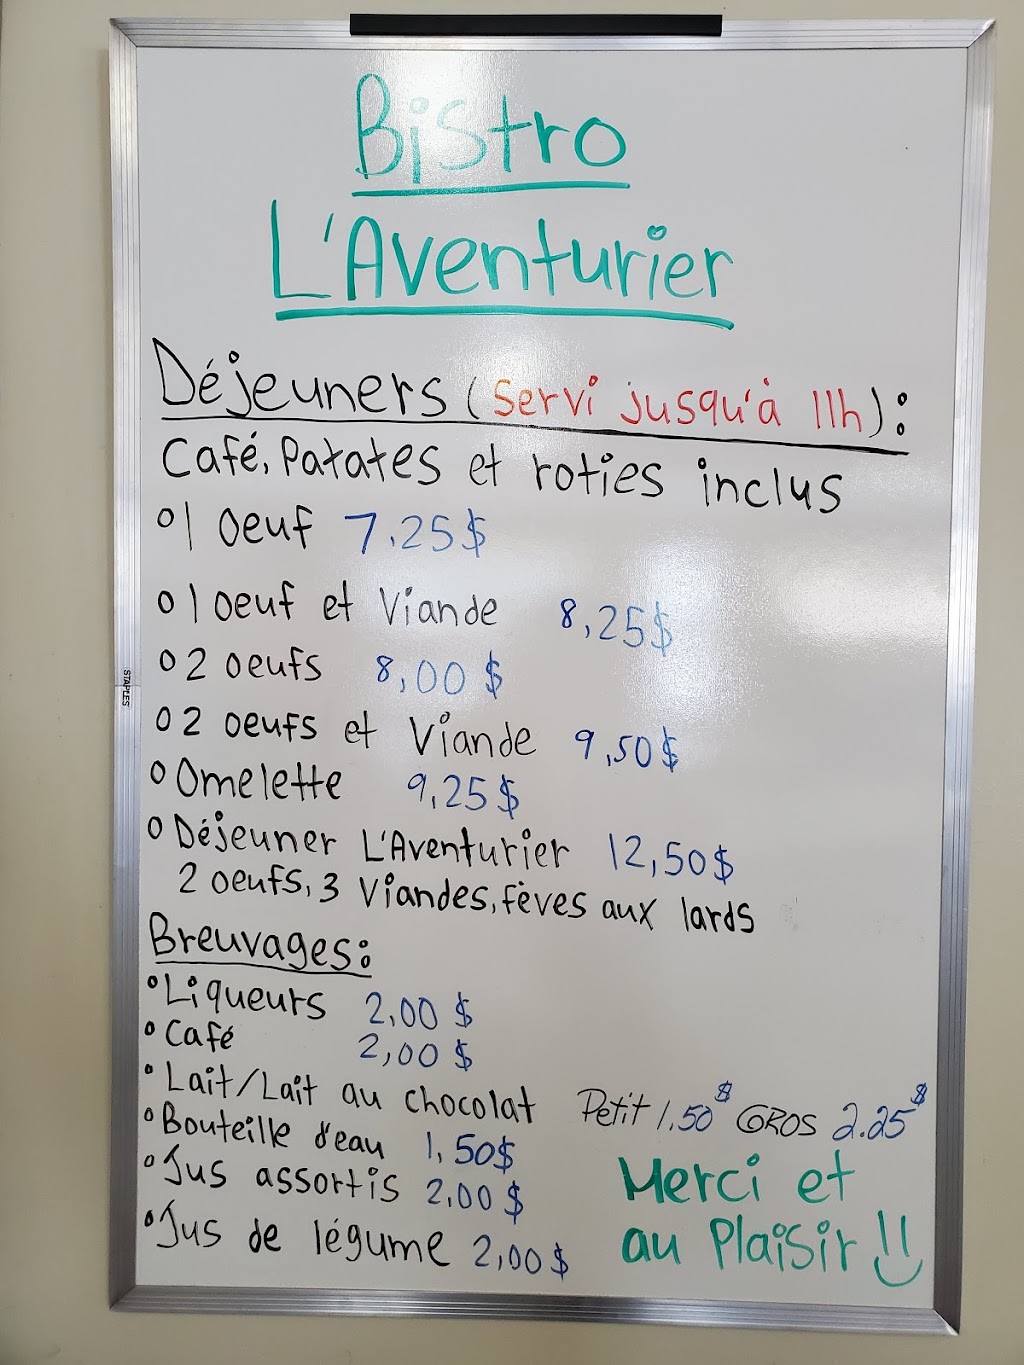 Bistro
L'Aventurier
Déjeuners (Servi jusqu'à 11h):
Café, Patates et roties inclus
1 oeuf 7.25$
1 oeuf et Viande 8,25$
2 oeufs 8,00$
2 oeufs et Viande 9,50$
Omelette 9,25$
Déjeuner L'Aventurier 12,50$
2 oeufs, 3 Viandes, fèves aux lards
Breuvages:
Liqueurs 2,00$
Café 2,00$
Lait/Lait au chocolat Petit 1,50$ GROS 2.25$
Bouteille d'eau 1,50$
Jus assortis 2,00$
Jus de légume 2,00$
Merci et
au Plaisir!!
STAPLES